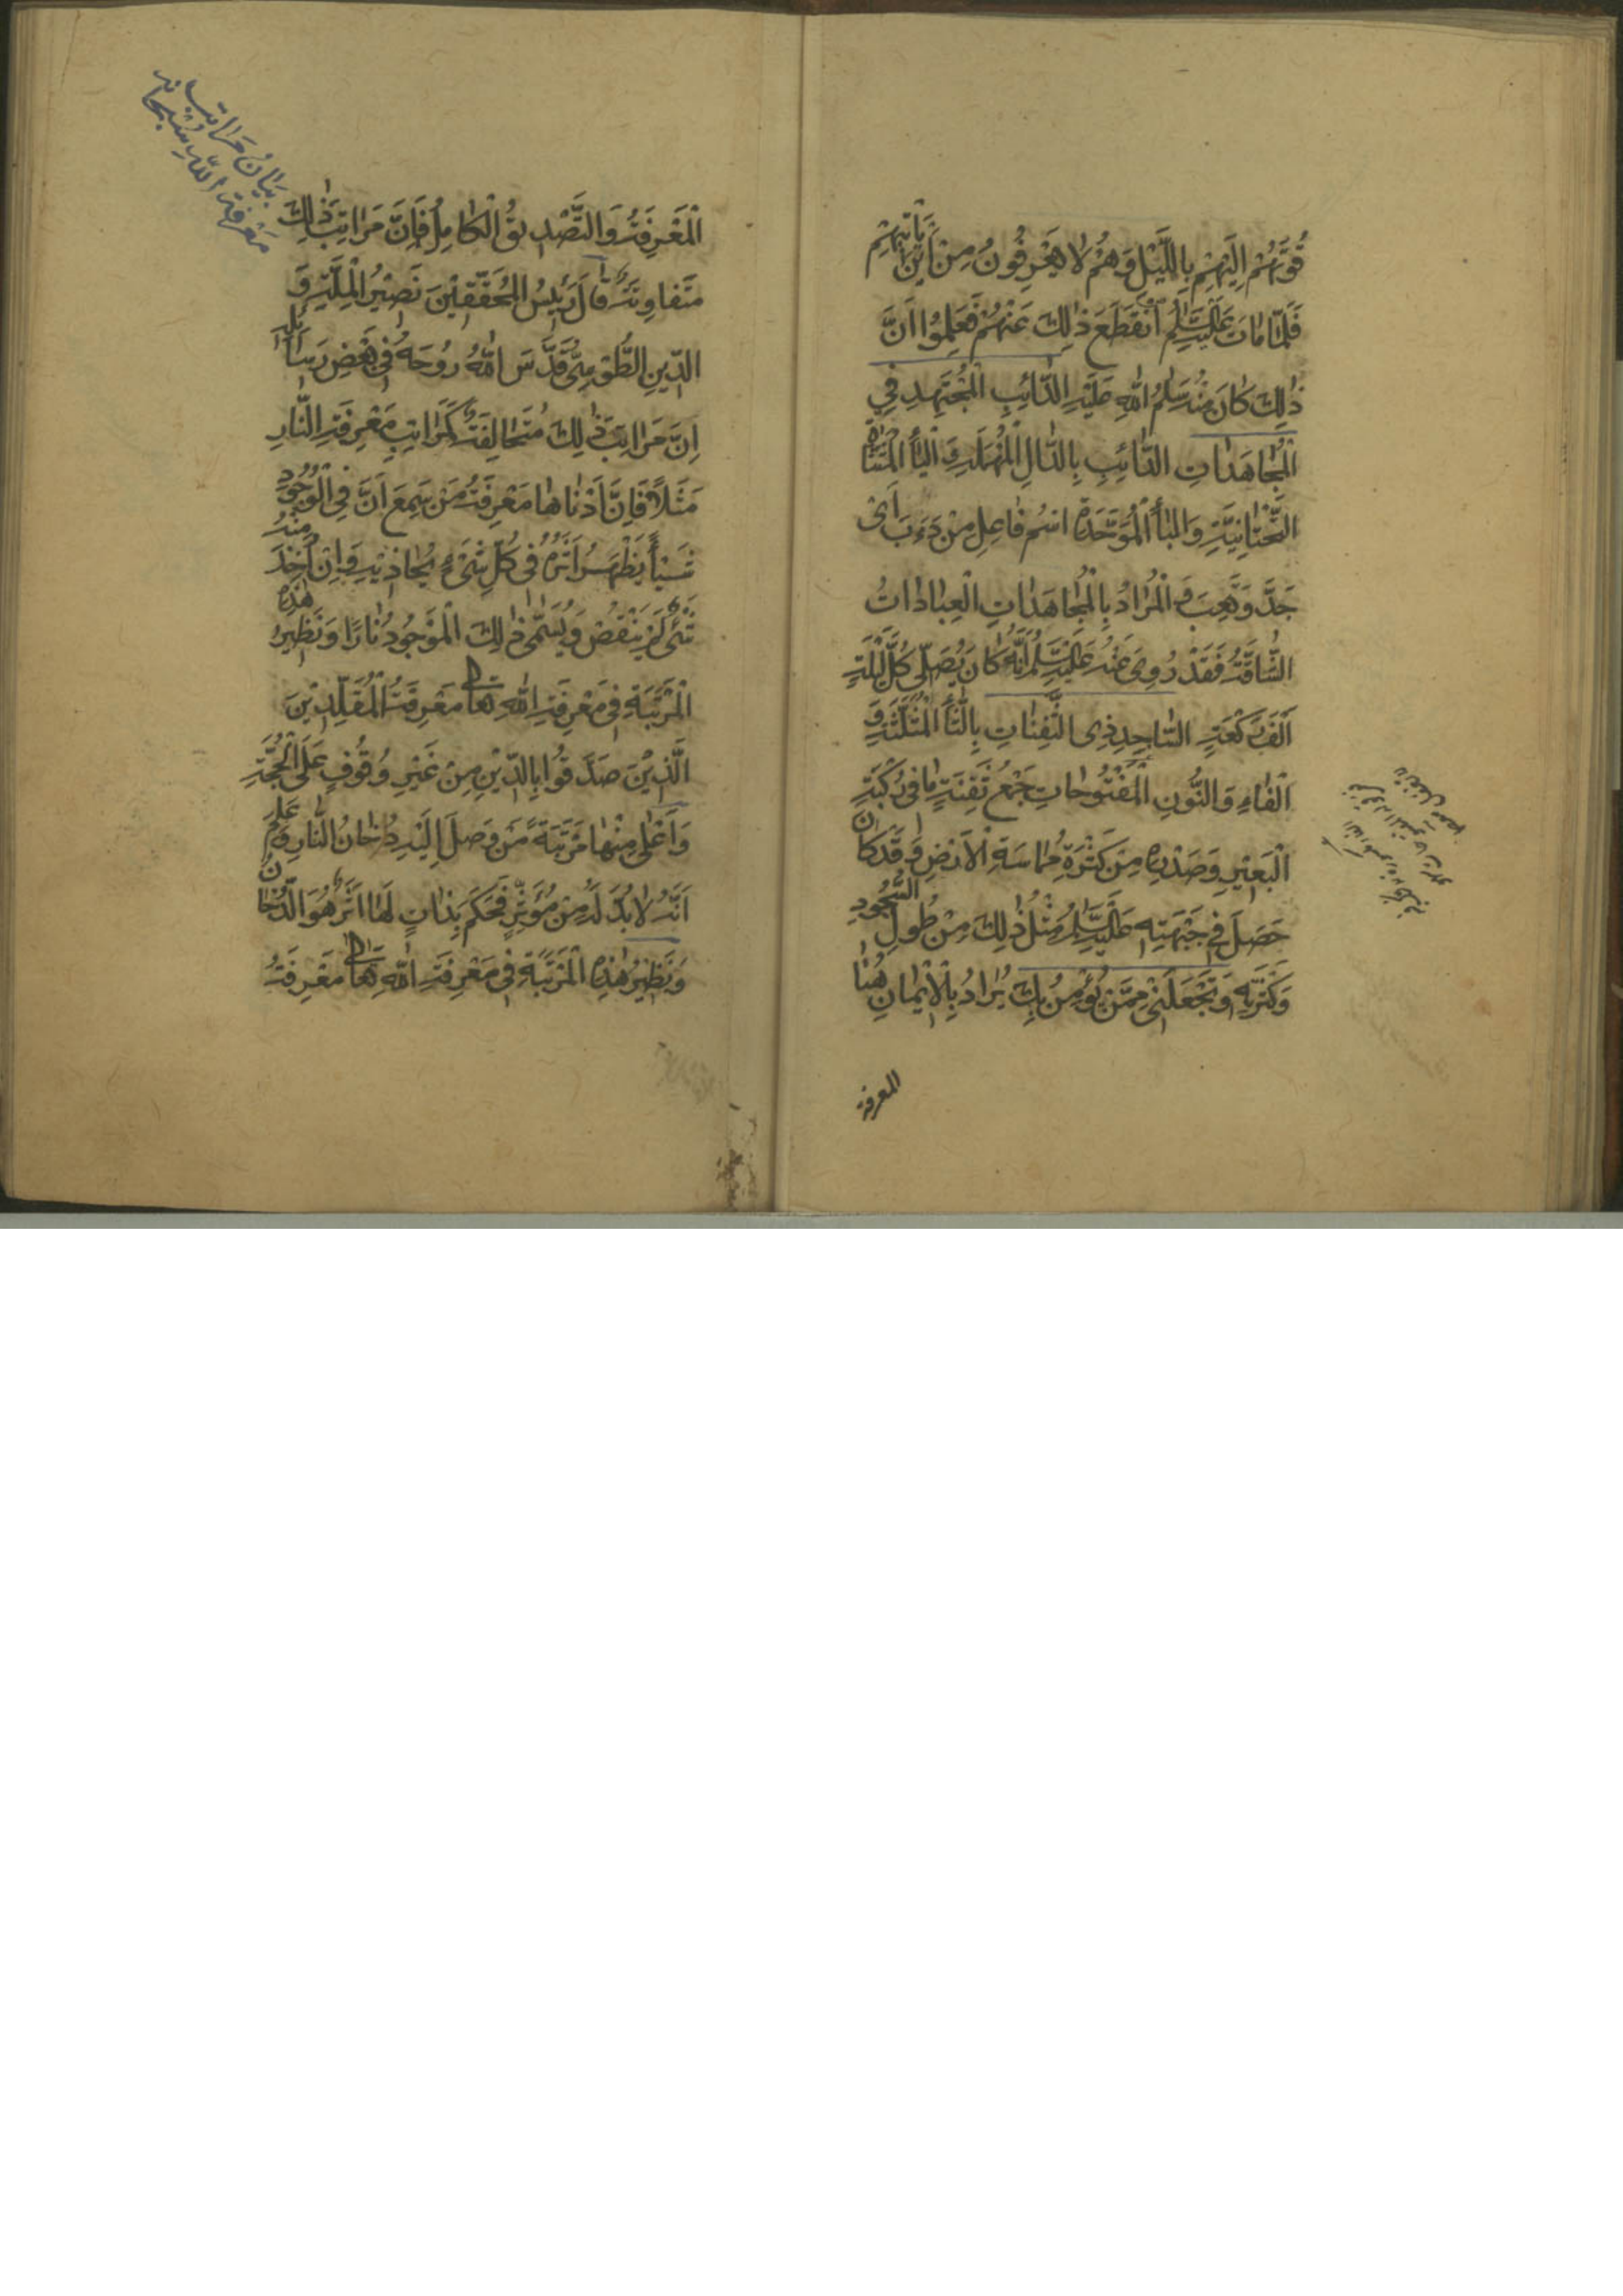 قُوتُهُمْ اِلَيْهِمْ بِاللَّيْلِ وَهُمْ لَا يَعْرِفُونَ مِنْ اَيْنَ يَاْتِيهِمْ
فَلَمَّا مَاتَ عَلَيْهِ السَّلَامُ انْقَطَعَ ذٰلِكَ عَنْهُمْ فَعَلِمُوا اَنَّ
ذٰلِكَ كَانَ مِنْهُ سَلَامُ اللّٰهِ عَلَيْهِ الدَّائِبِ الْمُجْتَهِدِ فِي
الْمُجَاهَدَاتِ الدَّائِبِ بِالدَّالِ الْمُهْمَلَةِ وَ الْيَاْ الْمُثَنَّاةِ
التَّحْتَانِيَّةِ وَالْبَاْ الْمُوَحَّدَةِ اسْمُ فَاعِلٍ مِنْ دَءَبَ اَيْ
جَدَّ وَتَعِبَ وَ الْمُرَادُ بِالْمُجَاهَدَاتِ الْعِبَادَاتُ
الشَّاقَّةُ فَقَدْ رُوِيَ عَنْهُ عَلَيْهِ السَّلَامُ اَنَّهُ كَانَ يُصَلِّي كُلَّ لَيْلَةٍ
اَلْفَ رَكْعَةٍ السَّاجِدِ ذِي الثَّفِنَاتِ بِالثَّاْ الْمُثَلَّثَةِ وَ
الْفَاءِ وَ النُّونِ الْمَفْتُوحَاتِ جَمْعُ ثَفِنَةٍ مَا فِي رُكْبَةِ
الْبَعِيْرِ وَصَدْرِهِ مِنْ كَثْرَةِ مُمَاسَةِ الْاَرْضِ وَ قَدْ كَانَ
حَصَلَ فِي جَبْهَتِهِ عَلَيْهِ السَّلَامُ مِثْلُ ذٰلِكَ مِنْ طُولِ السُّجُودِ
وَ كَثْرَتِهِ وَتَجْعَلَنِي مِمَّنْ يُؤْمِنُ بِكَ يُرَادُ بِالْاِيْمَانِ هُنَا
المعرفة
بَيَانُ مَرَاتِبِ
مَعْرِفَةِ اللّٰهِ سُبْحَانَهُ
الْمَعْرِفَةُ وَ التَّصْدِيقُ الْكَامِلُ فَاِنَّ مَرَاتِبَ ذٰلِكَ
مُتَفَاوِتَةٌ قَالَ رَئِيسُ الْمُحَقِّقِيْنَ نَصِيْرُ الْمِلَّةِ وَ
الدِّينِ الطُّوسِيُّ قَدَّسَ اللّٰهُ رُوحَهُ فِي بَعْضِ رَسَائِلِهِ
اِنَّ مَرَاتِبَ ذٰلِكَ مُتَخَالِفَةٌ كَمَرَاتِبِ مَعْرِفَةِ النَّارِ
مَثَلًا فَاِنَّ اَدْنَاهَا مَعْرِفَةُ مَنْ سَمِعَ اَنَّ فِي الْوُجُودِ
شَيْئًا يَظْهَرُ اَثَرُهُ فِي كُلِّ شَيْءٍ يُحَاذِيْهِ وَ اِنْ اُخِذَ مِنْهُ
شَيْءٌ لَمْ يَنْقُصْ وَ يُسَمَّى ذٰلِكَ الْمَوْجُودُ نَارًا وَ نَظِيرُ هٰذِهِ
الْمَرْتَبَةِ فِي مَعْرِفَةِ اللّٰهِ تَعَالَى مَعْرِفَةُ الْمُقَلِّدِيْنَ
الَّذِيْنَ صَدَّقُوا بِالدِّيْنِ مِنْ غَيْرِ وُقُوفٍ عَلَى الْحُجَّةِ
وَ اَعْلَى مِنْهَا مَرْتَبَةً مَنْ وَصَلَ اِلَيْهِ دُخَانُ النَّارِ وَ عَلِمَ
اَنَّهُ لَا بُدَّ لَهُ مِنْ مُؤَثِّرٍ فَحَكَمَ بِذَاتٍ لَهَا اَثَرٌ هُوَ الدُّخَانُ
وَ نَظِيْرُ هٰذِهِ الْمَرْتَبَةِ فِي مَعْرِفَةِ اللّٰهِ تَعَالَى مَعْرِفَةُ